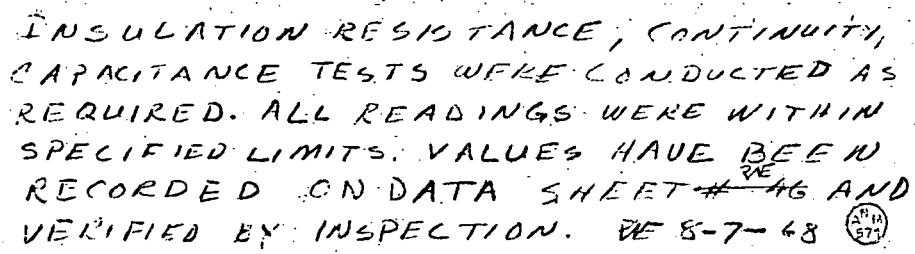 INSULATION RESISTANCE, CONTINUITY,
CAPACITANCE TESTS WERE CONDUCTED AS
REQUIRED. ALL READINGS WERE WITHIN
SPECIFIED LIMITS. VALUES HAVE BEEN
RECORDED ON DATA SHEET # 46 AND
VERIFIED BY INSPECTION. 8-7-68